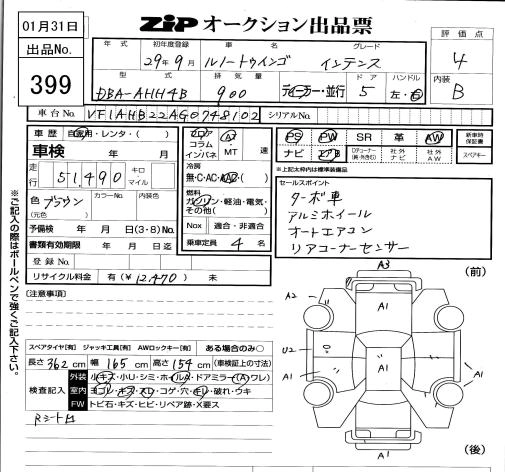 01月31日
出品No.
399
ZIP オークション出品票
評価点
4
内装
B
年式 初年度登録 車名 グレード
29年9月 ルノートゥインゴ インテンス
型式 排気量 ディーラー・並行 ドア ハンドル
DBA-AHH4B 900 5 左・右
車台No. VF1AHB22AG0748102 シリアルNo.
車歴 自家用・レンタ・( )
車検 年 月
走行 51,490 キロ マイル
色 ブラウン カラーNo. 内装色
(元色)
予備検 年 月 日(3・8)No.
書類有効期限 年 月 日迄
登録No.
リサイクル料金 有(¥12,470) 未
フロア
コラム
インパネ
AT
MT 速
冷房
無・C・AC・AAC・( )
燃料
ガソリン・軽油・電気・
その他( )
Nox 適合・非適合
乗車定員 4 名
PS PW SR 革 AW
ナビ エアB Dチューナー 社外ナビ 社外AW
新車時保証書
スペアキー
※上記太枠内は標準装備品
セールスポイント
ターボ車
アルミホイール
オートエアコン
リアコーナーセンサー
※ご記入の際はボールペンで強くご記入下さい。
[注意事項]
スペアタイヤ[有] ジャッキ工具[有] AWロックキー[有] ある場合のみ○
長さ 362 cm 幅 165 cm 高さ 154 cm (車検証上の寸法)
検査記入
外装 小キズ・小U・シミ・ホイルA・ドアミラー(A)ワレ)
室内 ヨゴレ・キズ・スレ・コゲ・穴・キレ・破れ・ウキ
FW トビ石・キズ・ヒビ・リペア跡・X要ス
A3 (前)
A2 A1
U2 A1
A1 A1
A1 (後)